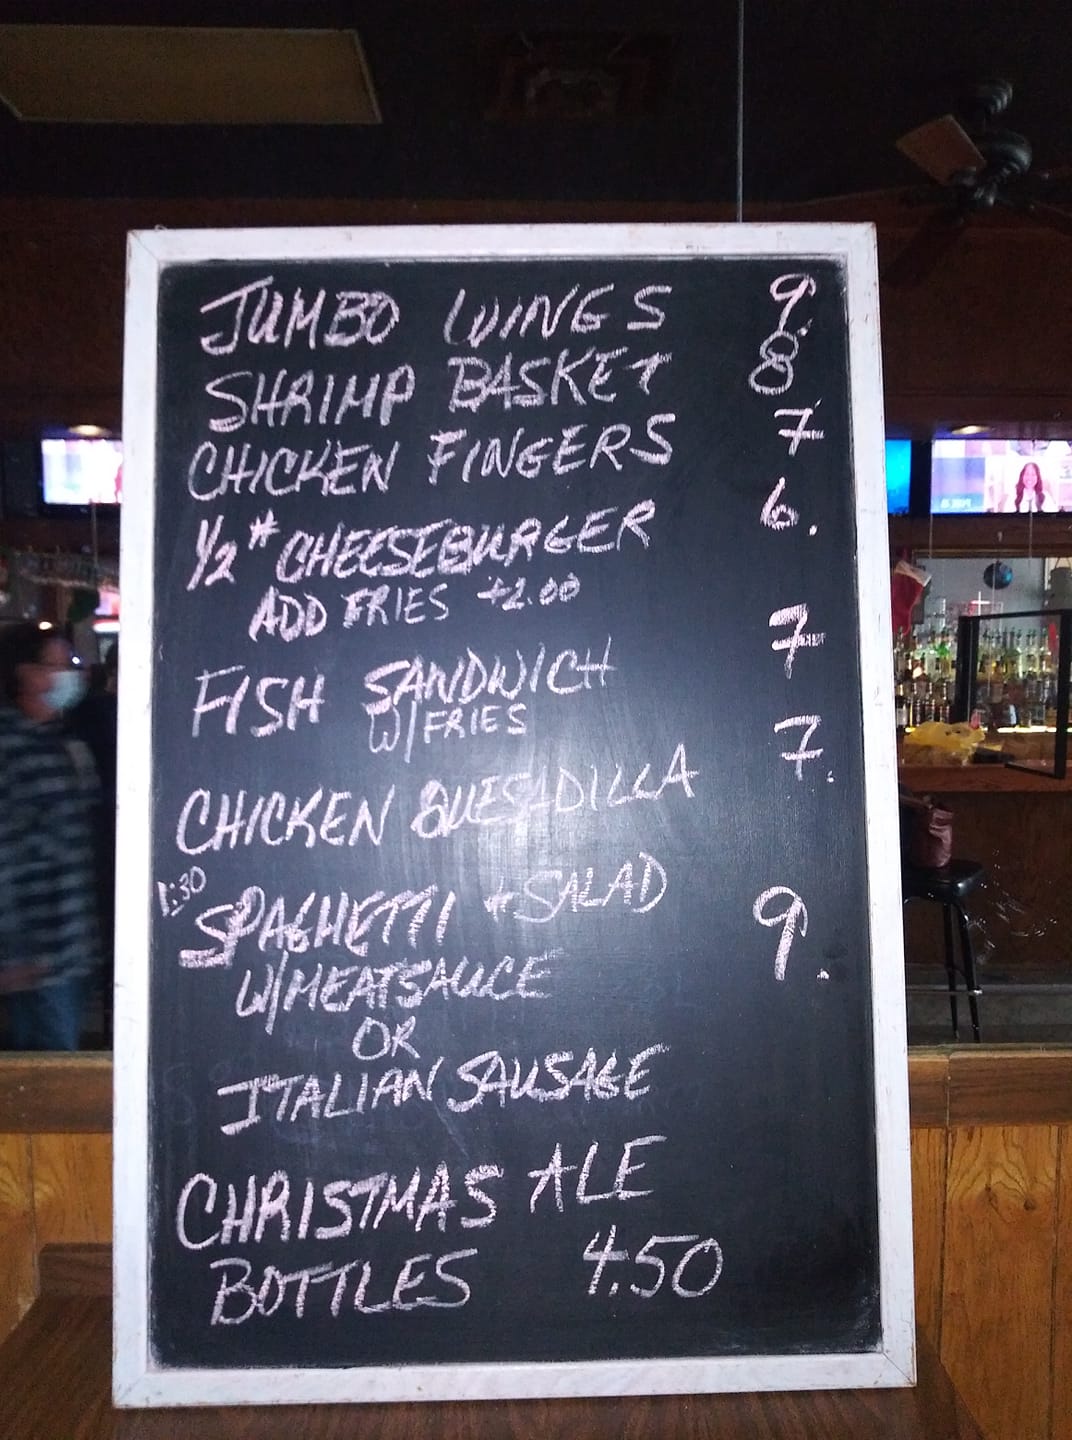 JUMBO WINGS 9.
SHRIMP BASKET 8
CHICKEN FINGERS 7
1/2 # CHEESEBURGER 6.
ADD FRIES +2.00
FISH SANDWICH 7
W/FRIES
CHICKEN QUESADILLA 7.
1:30
SPAGHETTI + SALAD 9.
W/MEATSAUCE
OR
ITALIAN SAUSAGE
CHRISTMAS ALE
BOTTLES 4.50